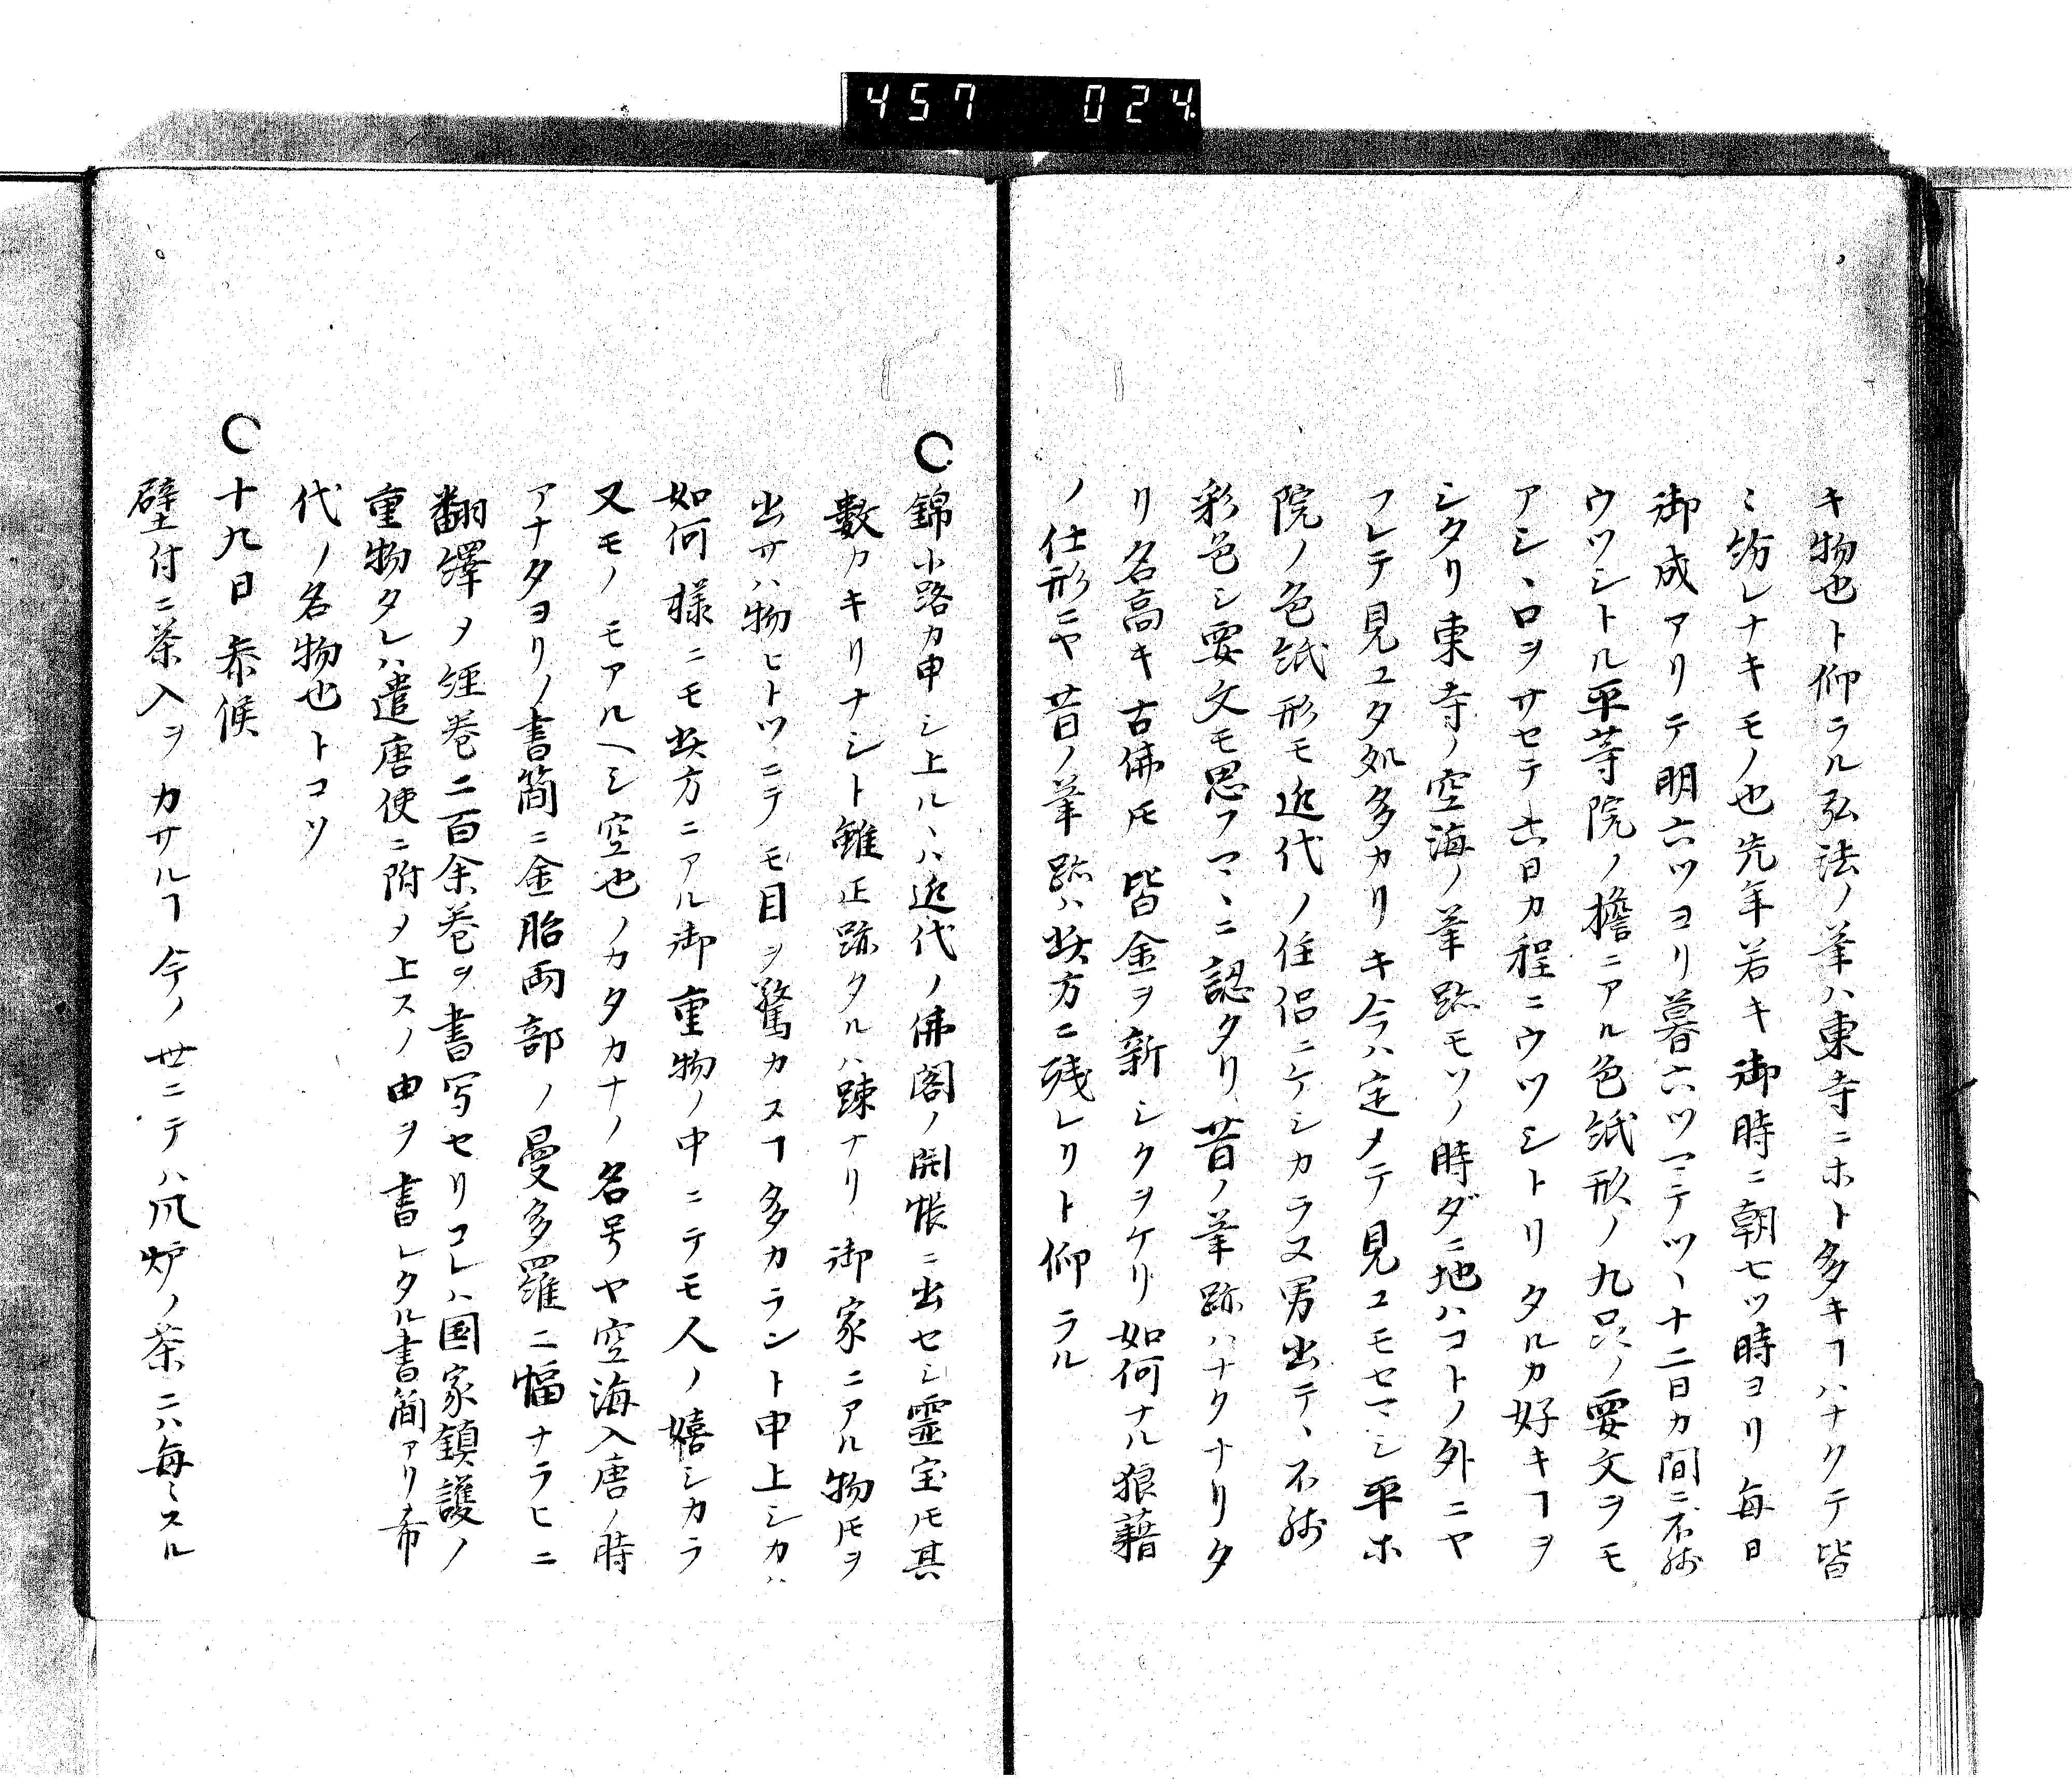 457 024
キ物也ト仰ラル弘法ノ筆ハ東寺ニホト多キヿハナクテ皆
ミ紛レナキモノ也先年若キ御時ニ朝七ツ時ヨリ毎日
御成アリテ明六ツヨリ暮六ツマテツヽ十二日カ間ニ不残
ウツシトル平等院ノ檐ニアル色紙形ノ九品ノ要文ヲモ
アシヽロヲサセテ六日カ程ニウツシトリタルカ好キヿヲ
シタリ東寺ノ空海ノ筆跡モソノ時ダニ地ハコトノ外ニヤ
フレテ見ユタ処多カリキ今ハ定メテ見ユモセマシ平ホ
院ノ色紙形モ近代ノ住侶ニケシカラヌ男出テヽ不残
彩色シ要文モ思フマヽニ認タリ昔ノ筆跡ハナクナリタ
リ名高キ古佛𪜈皆金ヲ新シクヲケリ如何ナル狼藉
ノ仕形ニヤ昔ノ筆跡ハ此方ニ残レリト仰ラル
〇錦小路カ申シ上ルハ近代ノ佛閣ノ開帳ニ出セシ霊宝𪜈其
數カキリナシト雖正跡タルハ踈ナリ御家ニアル物𪜈ヲ
出サハ物ヒトツニテモ目ヲ驚カスヿ多カラント申上シカハ
如何様ニモ此方ニアル御重物ノ中ニテモ人ノ嬉シカラ
又モノモアルヘシ空也ノカタカナノ名号ヤ空海入唐ノ時
アナタヨリノ書簡ニ金胎両部ノ曼多羅二幅ナラヒニ
翻繹ノ經巻二百余巻ヲ書写セリコレハ国家鎮護ノ
重物タレハ遣唐使ニ附メ上スノ由ヲ書レタル書簡アリ希
代ノ名物也トコソ
〇十九日 参候
壁付ニ茶入ヲカサルヿ今ノ世ニテハ風炉ノ茶ニハ毎ミスル